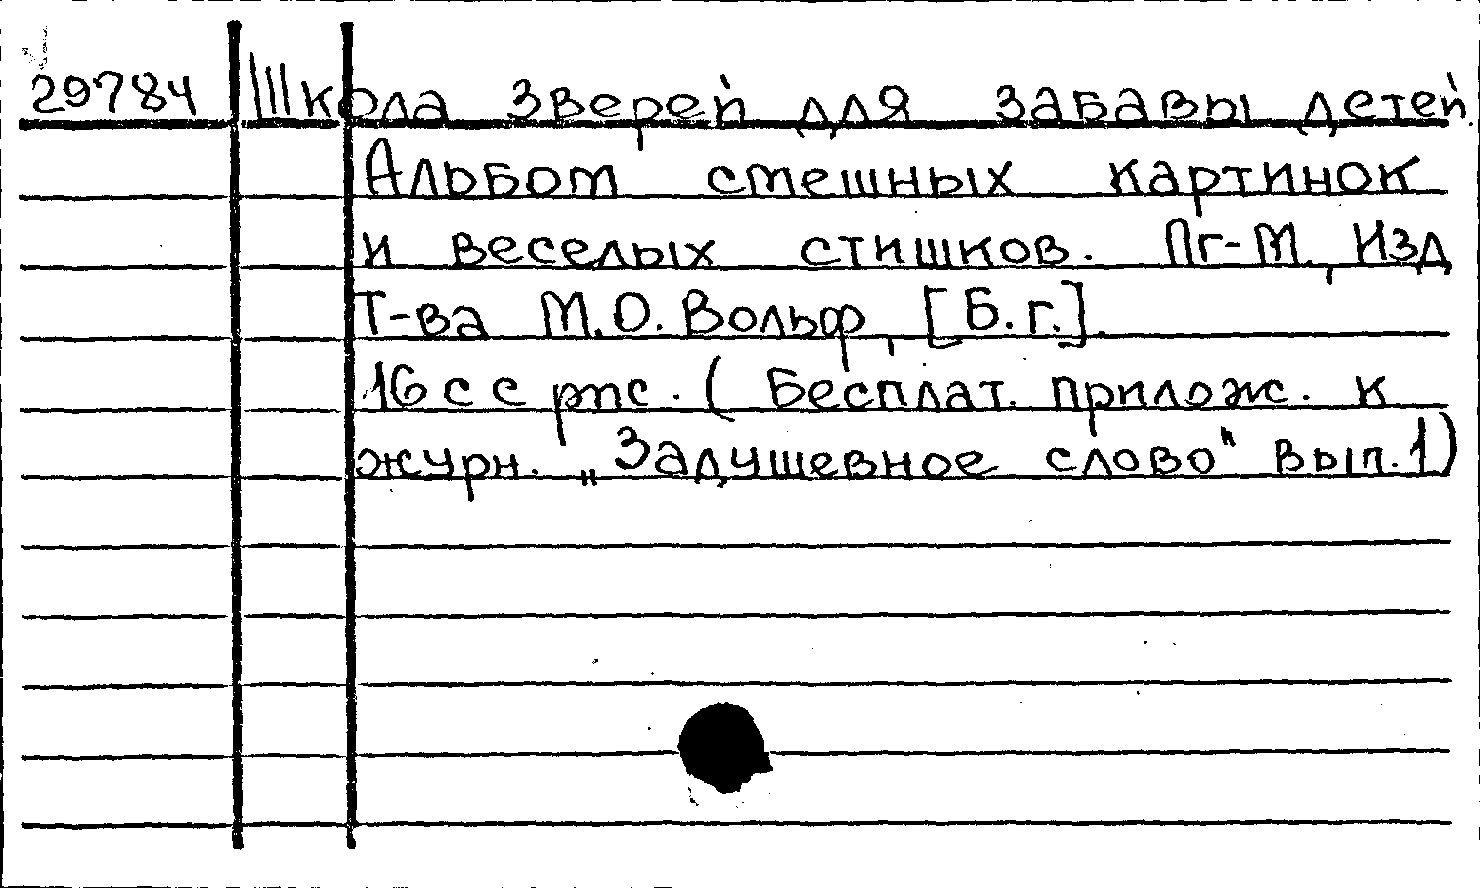 29784 Школа зверей для забавы детей.
Альбом смешных картинок
и веселых стишков. Пг-М., Изд
Т-ва М.О. Вольф, [Б.г.].
16 с с рис. (Бесплат. прилож. к
журн. „Задушевное слово" вып. 1)